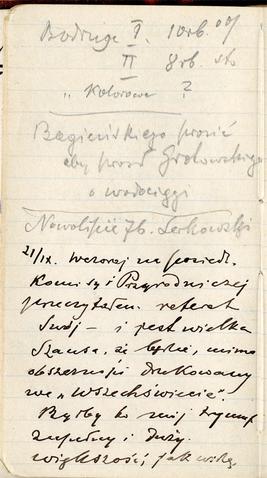 Bodruge I. 10rb. 00/
II 8rb. sto
" Kolorowe ?
Bagieńskiego prosić
aby prosił Grotowskiego
o wodociągi
Nowolipie 76. Lerkowski
21/IX. Wczoraj na posiedz.
Komisyi Przyrodniczej
przeczytałem referat
swój – i jest wielka
szansa, że będzie, mimo
obszerności drukowany
we „Wszechświecie".
Byłby to mój tryumf
zupełny i duży.
większości, jak widzę,